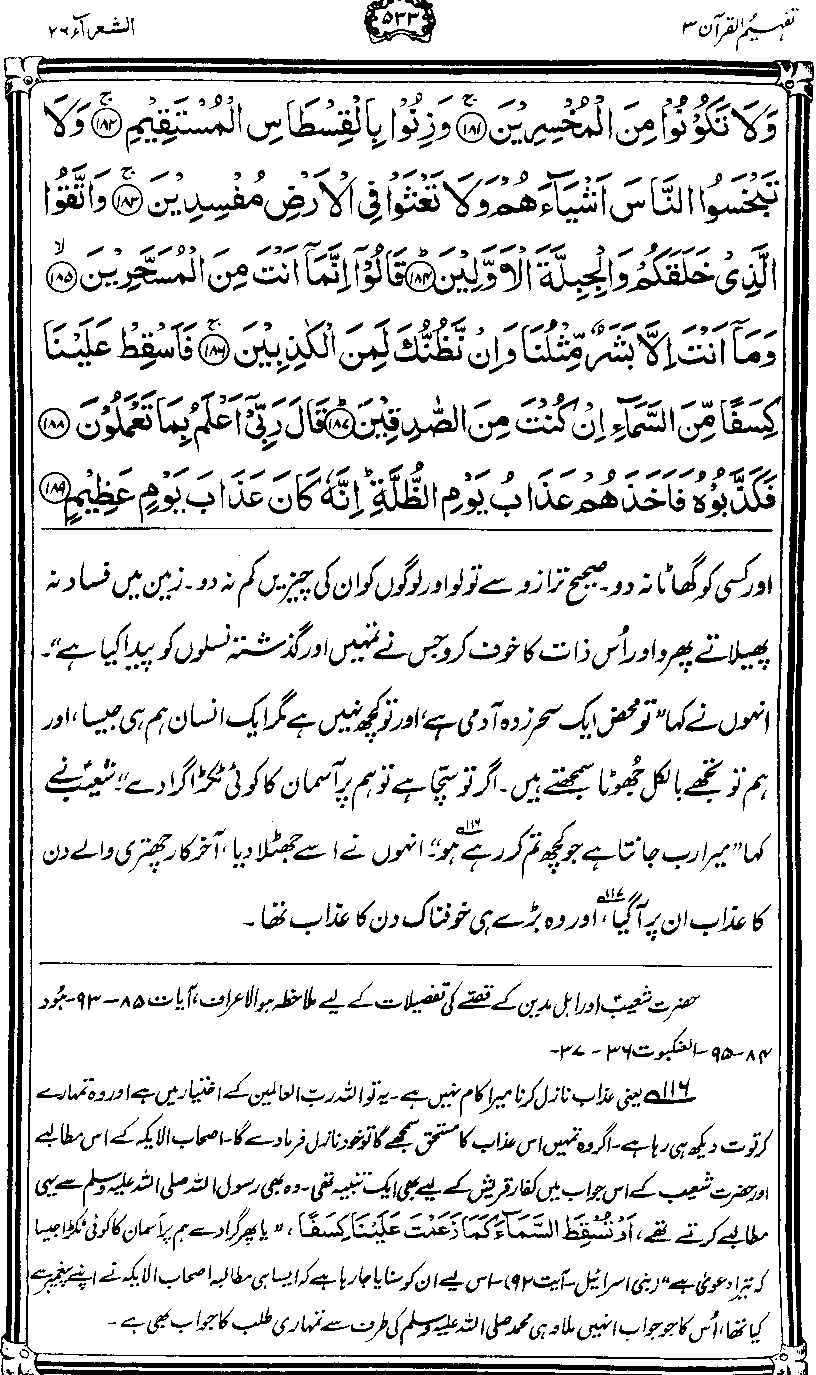 تفہیم القرآن ۳
۵۳۳
الشعرآء ۲۶
وَلَا تَكُوْنُوْا مِنَ الْمُخْسِرِيْنَ ﴿۱۸۱﴾ۚ وَزِنُوْا بِالْقِسْطَاسِ الْمُسْتَقِيْمِ ﴿۱۸۲﴾ۚ وَلَا
تَبْخَسُوا النَّاسَ اَشْيَآءَهُمْ وَلَا تَعْثَوْا فِى الْاَرْضِ مُفْسِدِيْنَ ﴿۱۸۳﴾ۚ وَاتَّقُوا
الَّذِىْ خَلَقَكُمْ وَالْجِبِلَّةَ الْاَوَّلِيْنَ ﴿۱۸۴﴾ؕ قَالُوْٓا اِنَّمَآ اَنْتَ مِنَ الْمُسَحَّرِيْنَ ﴿۱۸۵﴾ۙ
وَمَآ اَنْتَ اِلَّا بَشَرٌ مِّثْلُنَا وَاِنْ نَّظُنُّكَ لَمِنَ الْكٰذِبِيْنَ ﴿۱۸۶﴾ۚ فَاَسْقِطْ عَلَيْنَا
كِسَفًا مِّنَ السَّمَآءِ اِنْ كُنْتَ مِنَ الصّٰدِقِيْنَ ﴿۱۸۷﴾ؕ قَالَ رَبِّىْٓ اَعْلَمُ بِمَا تَعْمَلُوْنَ ﴿۱۸۸﴾
فَكَذَّبُوْهُ فَاَخَذَهُمْ عَذَابُ يَوْمِ الظُّلَّةِ ؕ اِنَّهٗ كَانَ عَذَابَ يَوْمٍ عَظِيْمٍ ﴿۱۸۹﴾
اور کسی کو گھاٹا نہ دو۔ صحیح ترازو سے تولو اور لوگوں کو ان کی چیزیں کم نہ دو۔ زمین میں فساد نہ
پھیلاتے پھرو اور اُس ذات کا خوف کرو جس نے تمہیں اور گذشتہ نسلوں کو پیدا کیا ہے"۔
انہوں نے کہا "تو محض ایک سحرزدہ آدمی ہے، اور تو کچھ نہیں ہے مگر ایک انسان ہم ہی جیسا، اور
ہم تو تجھے بالکل جھوٹا سمجھتے ہیں۔ اگر تو سچّا ہے تو ہم پر آسمان کا کوئی ٹکڑا گرا دے"۔ شعیبؑ نے
کہا "میرا رب جانتا ہے جو کچھ تم کر رہے ہو"۱۱۶۔ انہوں نے اسے جھٹلا دیا، آخر کار چھتری والے دن
کا عذاب ان پر آگیا۱۱۷، اور وہ بڑے ہی خوفناک دن کا عذاب تھا۔
حضرت شعیبؑ اور اہل مدین کے قصّے کی تفصیلات کے لیے ملاحظہ ہو الاعراف، آیات ۸۵ – ۹۳۔ ہُود
۸۴ – ۹۵۔ العنکبوت ۳۶ – ۳۷۔
۱۱۶ یعنی عذاب نازل کرنا میرا کام نہیں ہے۔ یہ تو اللہ ربّ العالمین کے اختیار میں ہے اور وہ تمہارے
کرتوت دیکھ ہی رہا ہے۔ اگر وہ تمہیں اس عذاب کا مستحق سمجھے گا تو خود نازل فرما دے گا۔ اصحاب الایکہ کے اس مطالبے
اور حضرت شعیب کے اس جواب میں کفار قریش کے لیے بھی ایک تنبیہ تھی۔ وہ بھی رسول اللہ صلی اللہ علیہ وسلم سے یہی
مطالبے کرتے تھے، اَوْ تُسْقِطَ السَّمَآءَ كَمَا زَعَمْتَ عَلَيْنَا كِسَفًا، "یا پھر گرا دے ہم پر آسمان کا کوئی ٹکڑا جیسا
کہ تیرا دعویٰ ہے" (بنی اسرائیل۔ آیت ۹۲)۔ اس لیے ان کو سنایا جا رہا ہے کہ ایسا ہی مطالبہ اصحاب الایکہ نے اپنے پیغمبر سے
کیا تھا، اُس کا جو جواب انہیں ملا وہی محمد صلی اللہ علیہ وسلم کی طرف سے تمہاری طلب کا جواب بھی ہے۔